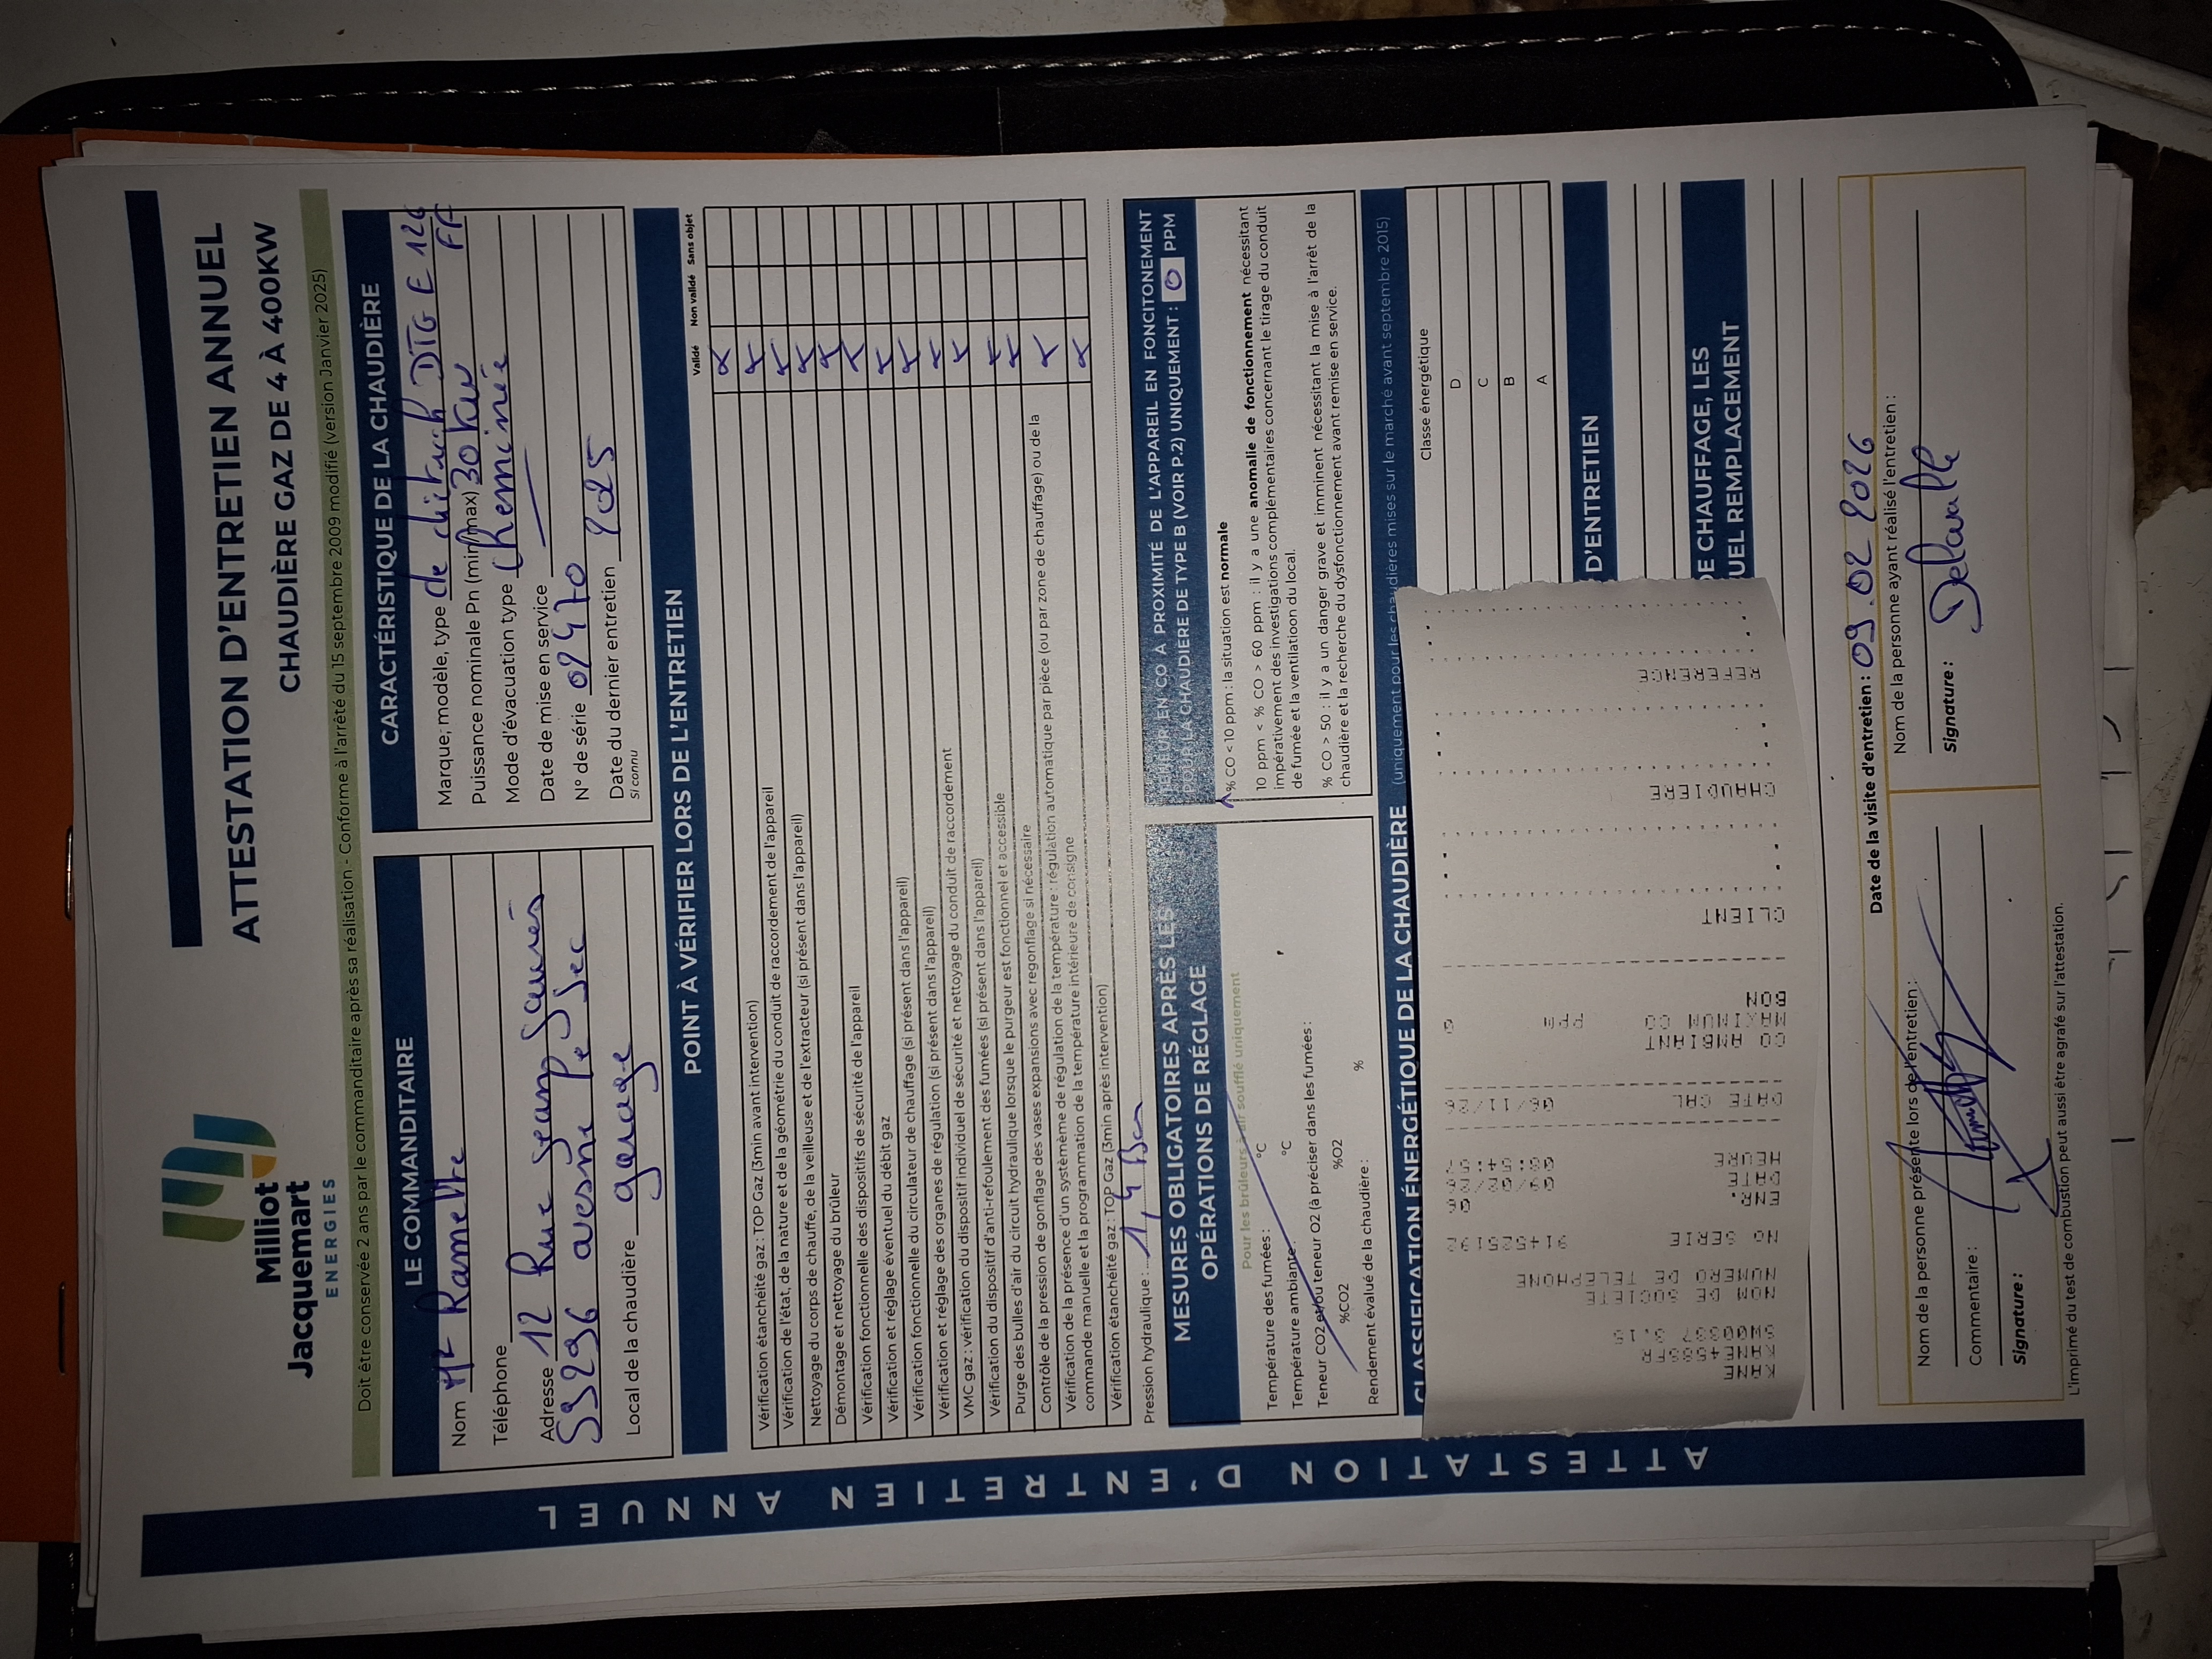 Milliot
Jacquemart
ENERGIES
ATTESTATION D'ENTRETIEN ANNUEL
CHAUDIÈRE GAZ DE 4 À 400KW
Doit être conservée 2 ans par le commanditaire après sa réalisation - Conforme à l'arrêté du 15 septembre 2009 modifié (version Janvier 2025)
LE COMMANDITAIRE
Nom Mr Ramette
Téléphone
Adresse 12 Rue Jean Jaurès
59296 avesne le sec
Local de la chaudière garage
CARACTÉRISTIQUE DE LA CHAUDIÈRE
Marque; modèle, type de dietrich DTG E 126 FF
Puissance nominale Pn (min/max) 30 kw
Mode d'évacuation type Cheminée
Date de mise en service —
N° de série 02470
Date du dernier entretien 2025
Si connu
POINT À VÉRIFIER LORS DE L'ENTRETIEN
Validé Non validé Sans objet
Vérification étanchéité gaz : TOP Gaz (3min avant intervention) x
Vérification de l'état, de la nature et de la géométrie du conduit de raccordement de l'appareil x
Nettoyage du corps de chauffe, de la veilleuse et de l'extracteur (si présent dans l'appareil) x
Démontage et nettoyage du brûleur x
Vérification fonctionnelle des dispositifs de sécurité de l'appareil x
Vérification et réglage éventuel du débit gaz x
Vérification fonctionnelle du circulateur de chauffage (si présent dans l'appareil) x
Vérification et réglage des organes de régulation (si présent dans l'appareil) x
VMC gaz : vérification du dispositif individuel de sécurité et nettoyage du conduit de raccordement x
Vérification du dispositif d'anti-refoulement des fumées (si présent dans l'appareil) x
Purge des bulles d'air du circuit hydraulique lorsque le purgeur est fonctionnel et accessible x
Contrôle de la pression de gonflage des vases expansions avec regonflage si nécessaire x
Vérification de la présence d'un systèmème de régulation de la température : régulation automatique par pièce (ou par zone de chauffage) ou de la
commande manuelle et la programmation de la température intérieure de consigne x
Vérification étanchéité gaz : TOP Gaz (3min après intervention) x
Pression hydraulique : 1,4 Bar
MESURES OBLIGATOIRES APRÈS LES
OPÉRATIONS DE RÉGLAGE
Pour les brûleurs à air soufflé uniquement
Température des fumées : °C
Température ambiante : °C
Teneur CO2 et/ou teneur O2 (à préciser dans les fumées :
%CO2 %O2
Rendement évalué de la chaudière : %
TENEUR EN CO À PROXIMITÉ DE L'APPAREIL EN FONCITONEMENT
POUR LA CHAUDIÈRE DE TYPE B (VOIR P.2) UNIQUEMENT : 0 PPM
% CO < 10 ppm : la situation est normale
10 ppm < % CO > 60 ppm : il y a une anomalie de fonctionnement nécessitant
impérativement des investigations complémentaires concernant le tirage du conduit
de fumée et la ventilatioon du local.
% CO > 50 : il y a un danger grave et imminent nécessitant la mise à l'arrêt de la
chaudière et la recherche du dysfonctionnement avant remise en service.
CLASSIFICATION ÉNERGÉTIQUE DE LA CHAUDIÈRE (uniquement pour les chaudières mises sur le marché avant septembre 2015)
Classe énergétique
D
C
B
A
D'ENTRETIEN
DE CHAUFFAGE, LES
UEL REMPLACEMENT
KANE
KANE458STR
SW00337 3.15
NOM DE SOCIETE
NUMERO DE TELEPHONE
NO SERIE
ENR.
DATE 09/02/26
HEURE
DATE CAL 06/11/26
CO AMBIANT
MAXIMUM CO ppm 0
BON
CLIENT
CHAUDIERE
REFERENCE
Date de la visite d'entretien : 09.02.2026
Nom de la personne présente lors de l'entretien :
Commentaire :
Signature :
Nom de la personne ayant réalisé l'entretien :
Signature : Delavalle
L'imprimé du test de combustion peut aussi être agrafé sur l'attestation.
ATTESTATION D'ENTRETIEN ANNUEL